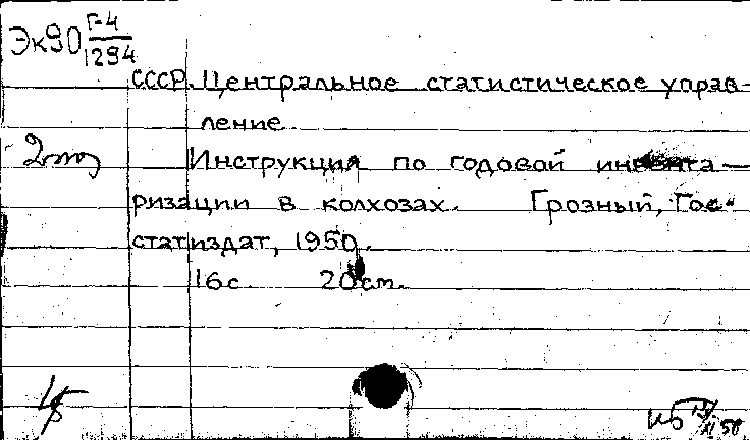 Эк90 Г-4
1294
СССР. Центральное статистическое управ-
ление
Инструкция по годовой инвента-
ризации в колхозах. Грозный, Гос-
статиздат, 1950.
16 с. 20 см.